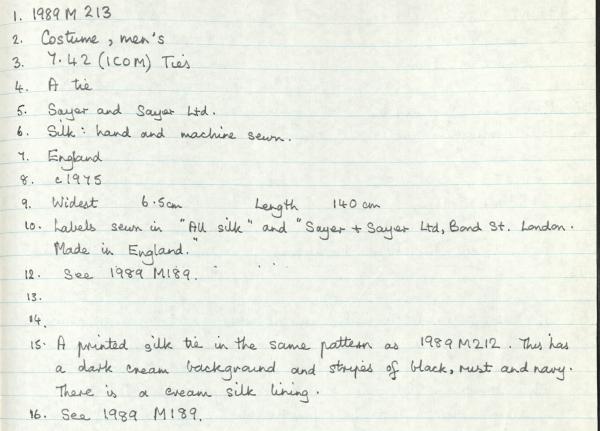 1. 1989 M 213
2. Costume, men's
3. 7.42 (ICOM) Ties
4. A tie
5. Sayer and Sayer Ltd.
6. Silk: hand and machine sewn.
7. England
8. c1975
9. Widest 6.5cm Length 140 cm
10. Labels sewn in "All silk" and "Sayer + Sayer Ltd, Bond St. London.
Made in England."
12. See 1989 M189.
13.
14.
15. A printed silk tie in the same pattern as 1989 M212. This has
a dark cream background and stripes of black, rust and navy.
There is a cream silk lining.
16. See 1989 M189.